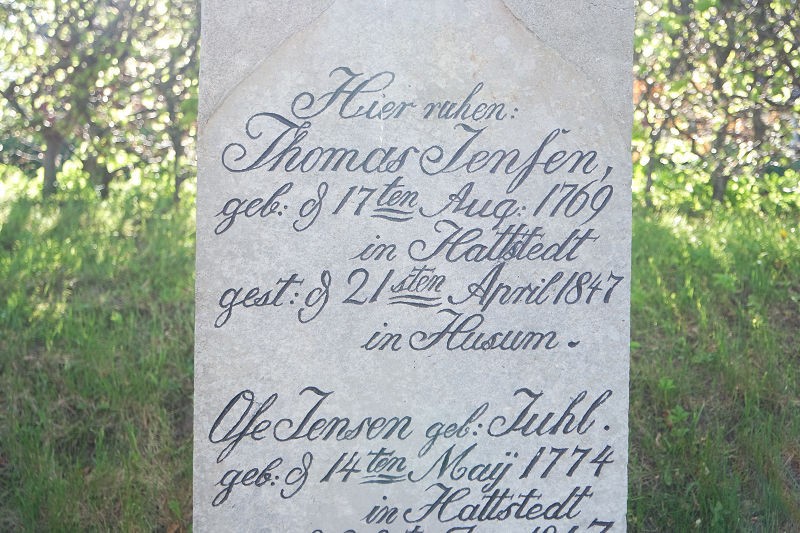 Hier ruhen:
Thomas Jenſen,
geb: d 17ten Aug: 1769
in Hattstedt
gest: d 21sten April 1847
in Husum.
Ose Jensen geb: Juhl.
geb: d 14ten Maÿ 1774
in Hattstedt